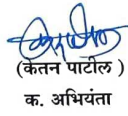 (केतन पाटील )
क. अभियंता